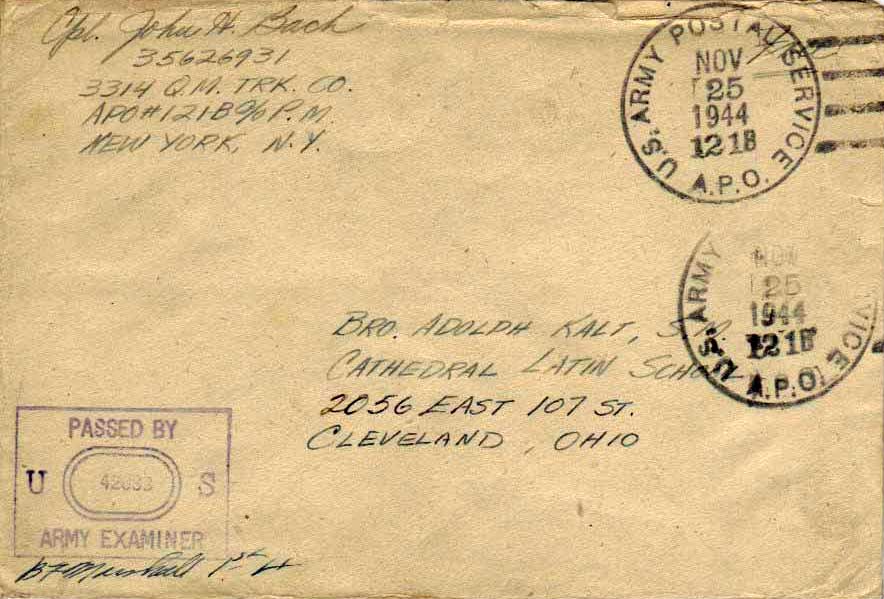 Cpl. John H. Bach
35626931
3314 Q.M. TRK. CO.
APO#121B c/o P.M.
NEW YORK, N.Y.
U.S. ARMY POSTAL SERVICE
NOV
25
1944
121B
A.P.O.
U.S. ARMY VICE
NOV
25
1944
121B
A.P.O.
BRO. ADOLPH KALT, S.M.
CATHEDRAL LATIN SCHOOL
2056 EAST 107 ST.
CLEVELAND, OHIO
PASSED BY
U 42033 S
ARMY EXAMINER
Marshall 1st Lt